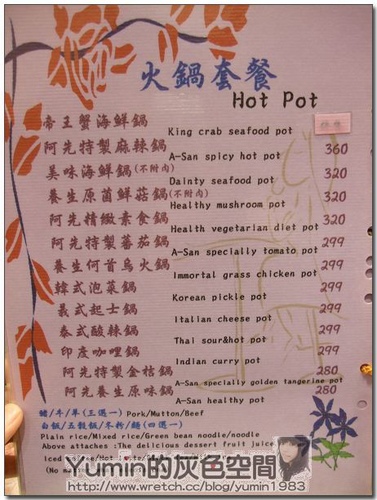 火鍋套餐
Hot Pot
帝王蟹海鮮鍋
King crab seafood pot
阿先特製麻辣鍋 360
A-San spicy hot pot
美味海鮮鍋(不附肉) 320
Dainty seafood pot
養生原菌鮮菇鍋(不附肉) 320
Healthy mushroom pot
阿先精緻素食鍋 320
Health vegetarian diet pot
阿先特製蕃茄鍋 299
A-San specially tomato pot
養生何首烏火鍋 299
Immortal grass chicken pot
韓式泡菜鍋 299
Korean pickle pot
義式起士鍋 299
Italian cheese pot
泰式酸辣鍋 299
Thai sour&hot pot
印度咖哩鍋 299
Indian curry pot
阿先特製金桔鍋 280
A-San specially golden tangerine pot
阿先養生原味鍋 280
A-San healthy pot
豬/牛/羊(三選一)Pork/Mutton/Beef
白飯/五穀飯/冬粉/麵(四選一)
Plain rice/Mixed rice/Green bean noodle/noodle
Above attaches :The delicious dessert fruit juice
Yumin的灰色空間
http://www.wretch.cc/blog/yumin1983